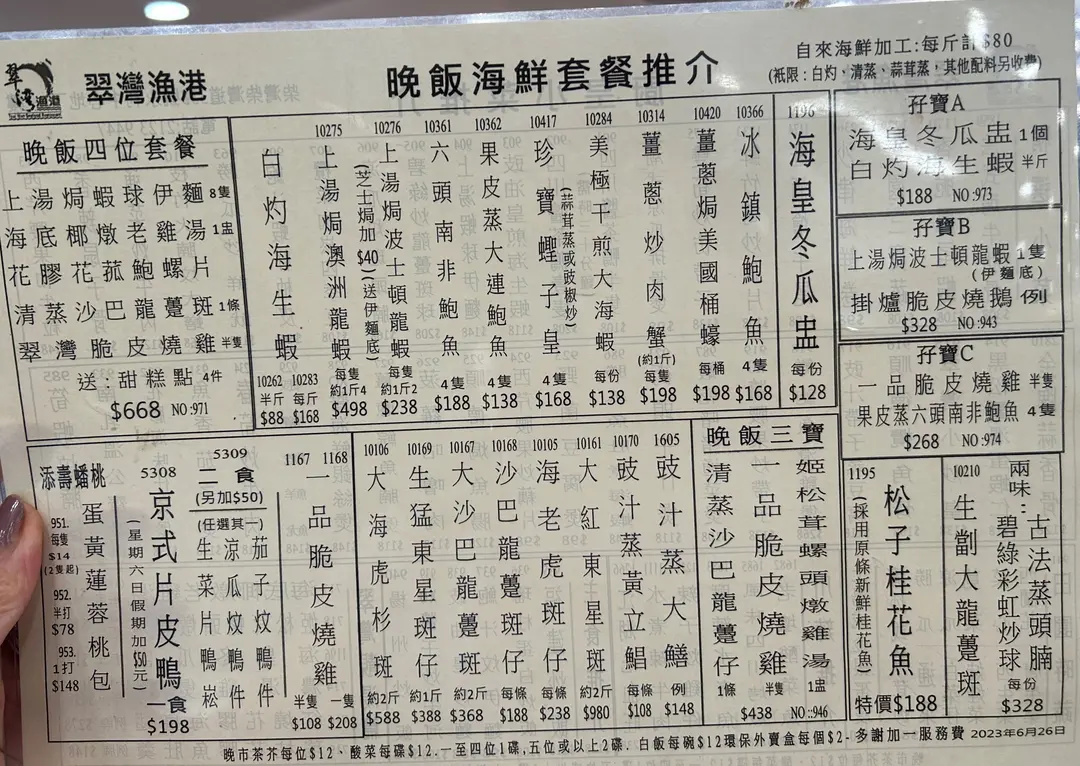 翠灣漁港
晚飯海鮮套餐推介
自來海鮮加工:每斤計$80
(祇限:白灼、清蒸、蒜茸蒸,其他配料另收費)
晚飯四位套餐
上湯焗蝦球伊麵 8隻
海底椰燉老雞湯 1盅
花膠花菰鮑螺片
清蒸沙巴龍躉斑 1條
翠灣脆皮燒雞 半隻
送:甜糕點 4件
$668 NO:971
白灼海生蝦
10262 半斤 $88
10283 每斤 $168
10275 上湯焗澳洲龍蝦 每隻 約1斤4 $498
10276 上湯焗波士頓龍蝦 (芝士焗加$40)(送伊麵底) 每隻 約1斤2 $238
10361 六頭南非鮑魚 4隻 $188
10362 果皮蒸大連鮑魚 4隻 $138
10417 珍寶蟶子皇 (蒜茸蒸或豉椒炒) 4隻 $168
10284 美極干煎大海蝦 每份 $138
10314 薑蔥炒肉蟹 (約1斤) 每隻 $198
10420 薑蔥焗美國桶蠔 每桶 $198
10366 冰鎮鮑魚 4隻 $168
1196 海皇冬瓜盅 每份 $128
孖寶A
海皇冬瓜盅 1個
白灼海生蝦 半斤
$188 NO:973
孖寶B
上湯焗波士頓龍蝦 1隻
(伊麵底)
掛爐脆皮燒鵝 例
$328 NO:943
孖寶C
一品脆皮燒雞 半隻
果皮蒸六頭南非鮑魚 4隻
$268 NO:974
添壽蟠桃
蛋黃蓮蓉桃包
951. 每隻 $14 (2隻起)
952. 半打 $78
953. 1打 $148
5308 京式片皮鴨 一食 $198
(星期六日假期加$50元)
5309 二食
(另加$50)
(任選其一)
生菜片鴨崧
涼瓜炆鴨件
茄子炆鴨件
1167 1168 一品脆皮燒雞
半隻 $108
一隻 $208
10106 大海虎杉斑 約2斤 $588
10169 生猛東星斑仔 約1斤 $388
10167 大沙巴龍躉 約2斤 $368
10168 沙巴龍躉斑仔 每條 $188
10105 海老虎斑仔 每條 $238
10161 大紅東星斑 約2斤 $980
10170 豉汁蒸黃立鯧 每條 $108
1605 豉汁蒸大鱔 例 $148
晚飯三寶
姬松茸螺頭燉雞湯 1盅
一品脆皮燒雞 半隻
清蒸沙巴龍躉仔 1條
$438 NO:946
1195 松子桂花魚
(採用原條新鮮桂花魚)
特價$188
10210 生劏大龍躉斑
兩味:古法蒸頭腩
碧綠彩虹炒球
每份 $328
晚市茶芥每位$12、酸菜每碟$12.一至四位1碟,五位或以上2碟.白飯每碗$12環保外賣盒每個$2-多謝加一服務費 2023年6月26日